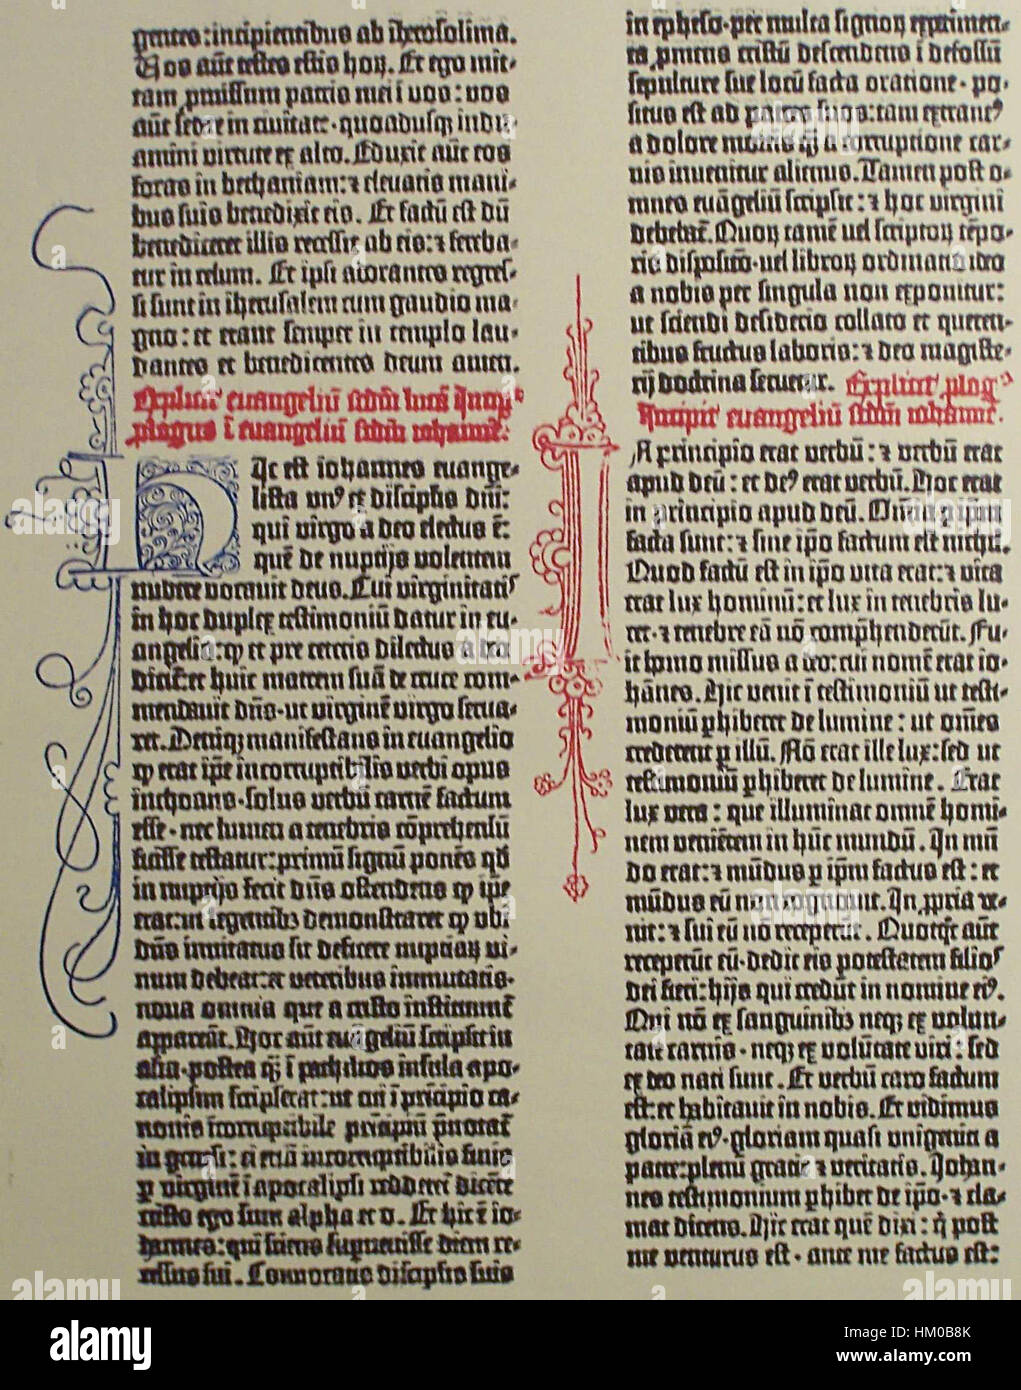 gentes: incipientibus ab iherosolima.
Vos aūt testes estis hoꝝ. Et ego mit-
tam ꝓmissum patris mei i vos: vos
aūt sedete in civitate· quoadusqꝫ indu-
amini virtute ex alto. Eduxit aūt eos
foras in bethaniam: ⁊ elevatis mani-
bus suis benedixit eis. Et factū est dū
benediceret illis recessit ab eis: ⁊ fereba-
tur in celum. Et ipsi adorantes regres-
si sunt in iherusalem cum gaudio ma-
gno: et erant semper in templo lau-
dantes et benedicentes deum amen.
Explicit euangeliū scdm lucā Incipit
plogus ī euangeliū scdm iohannē.
Hic est iohannes euange-
lista unꝰ ex discipulis dnī:
qui virgo a deo electus ē:
quē de nuptijs volentem
nubere vocavit deus. Cui virginitatis
in hoc duplex testimoniū datur in eu-
angelio: ꝙ et pre ceteris dilectus a deo
dicit̄: et huic matrem suā de cruce com-
mendavit dn̄s· ut virginē virgo serva-
ret. Deniqꝫ manifestans in euangelio
ꝙ erat ip̄e incorruptibilis verbi opus
inchoans· solus verbū carnē factum
esse· nec lumen a tenebris cōprehensū
fuisse testatur: primū signū ponēs qd̄
in nuptijs fecit dn̄s ostendens ꝙ ip̄e
erat: ut legentibꝫ demonstraret ꝙ ubi
dn̄s invitatus sit deficere nuptiaꝝ vi-
num debeat: et veteribus immutatis·
nova omnia que a cristo instituunt̄
appareāt. Hoc aūt euāgeliū scripsit in
asia· postea qȝ ī pathmos insula apo-
calipsim scripserat: ut cui ī prīcipio ca-
nonis īcorruptibile prīcipiū p̄notat̄
in genesi: ei etiā incorruptibilis finis
ꝑ virginē ī apocalipsi redderet̄ dicēte
cristo ego sum alpha et o. Et hic ē io-
hannes: qui sciens supervenisse diem re-
cessus sui. Convocatis discipulis suis
in epheso· per multa signoꝝ experimen-
ta ꝓmens cristū descendens ī defossū
sepulture sue locū facta oratione· po-
situs est ad patres suos: tam extraneꝰ
a dolore mortis ꝙ̄ a corruptione car-
nis invenitur alienus. Tamen post o-
mnes euāgeliū scripsit: ⁊ hoc virgini
debebat̄. Quoꝝ tamē vel scriptoꝝ tēpo-
ris dispositō· vel libroꝝ ordinatō ideo
a nobis per singula non exponitur:
ut sciendi desiderio collato et queren-
tibus fructus laboris: ⁊ deo magiste-
rij doctrina servetur. Explicit plogꝰ
Incipit euangeliū scdm iohannē.
In principio erat verbū: ⁊ verbū erat
apud deū: et deꝰ erat verbū. Hoc erat
in principio apud deū. Omīa ꝑ ipm̄
facta sunt: ⁊ sine ip̄o factum est nichil.
Quod factū est in ip̄o vita erat: ⁊ vita
erat lux hominū: et lux in tenebris lu-
cet· ⁊ tenebre eā nō comp̄henderūt. Fu-
it homo missus a deo: cui nomē erat io-
hānes. Hic venit ī testimoniū ut testi-
moniū ꝑhiberet de lumine: ut om̄es
crederent ꝑ illū. Nō erat ille lux: sed ut
testimoniū ꝑhiberet de lumine. Erat
lux vera: que illuminat omnē homi-
nem veniētem in hūc mundū. In mū-
do erat: ⁊ mūdus ꝑ ip̄m factus est: et
mūdus eū non cognovit. In ꝓpria ve-
nit: ⁊ sui eū nō receperūt. Quotqt̄ aūt
receperūt eū· dedit eis potestatem filios
dei fieri: hijs qui credūt in nomine eiꝰ.
Qui nō ex sanguinibꝫ neqꝫ ex volun-
tate carnis· neqꝫ ex volūtate viri: sed
ex deo nati sunt. Et verbū caro factum
est: et habitavit in nobis. Et vidimus
gloriā eiꝰ· gloriam quasi unigeniti a
patre: plenū gratie ⁊ veritatis. Johan-
nes testimonium ꝑhibet de ip̄o· ⁊ cla-
mat dicens. Hic erat quē dixi: q̄ post
me venturus est· ante me factus est:
alamy
Image ID: HM0B8K
www.alamy.com